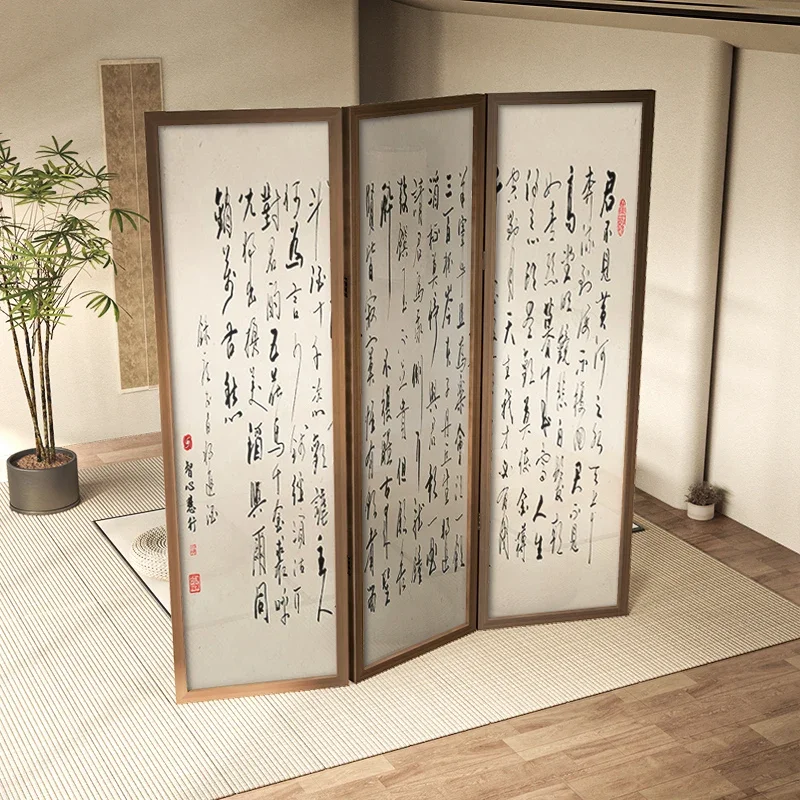 君不見黃河之水天上
奔流到海不復回君不見
高堂明鏡悲白髮朝
如青絲暮成雪人生
得意須盡歡莫使金樽
空對月天生我才必有用
羊宰牛且為樂會須一飲
三百杯岑夫子丹丘生將進
酒杯莫停與君歌一曲
請君為我側耳聽鐘
鼓饌玉不足貴但願長
醉不復醒古來聖
賢皆寂寞惟有飲者留
斗酒十千恣歡謔主人
何為言少錢徑須沽取
對君酌五花馬千金裘呼
兒將出換美酒與爾同
銷萬古愁
錄唐李白將進酒
智心慧行